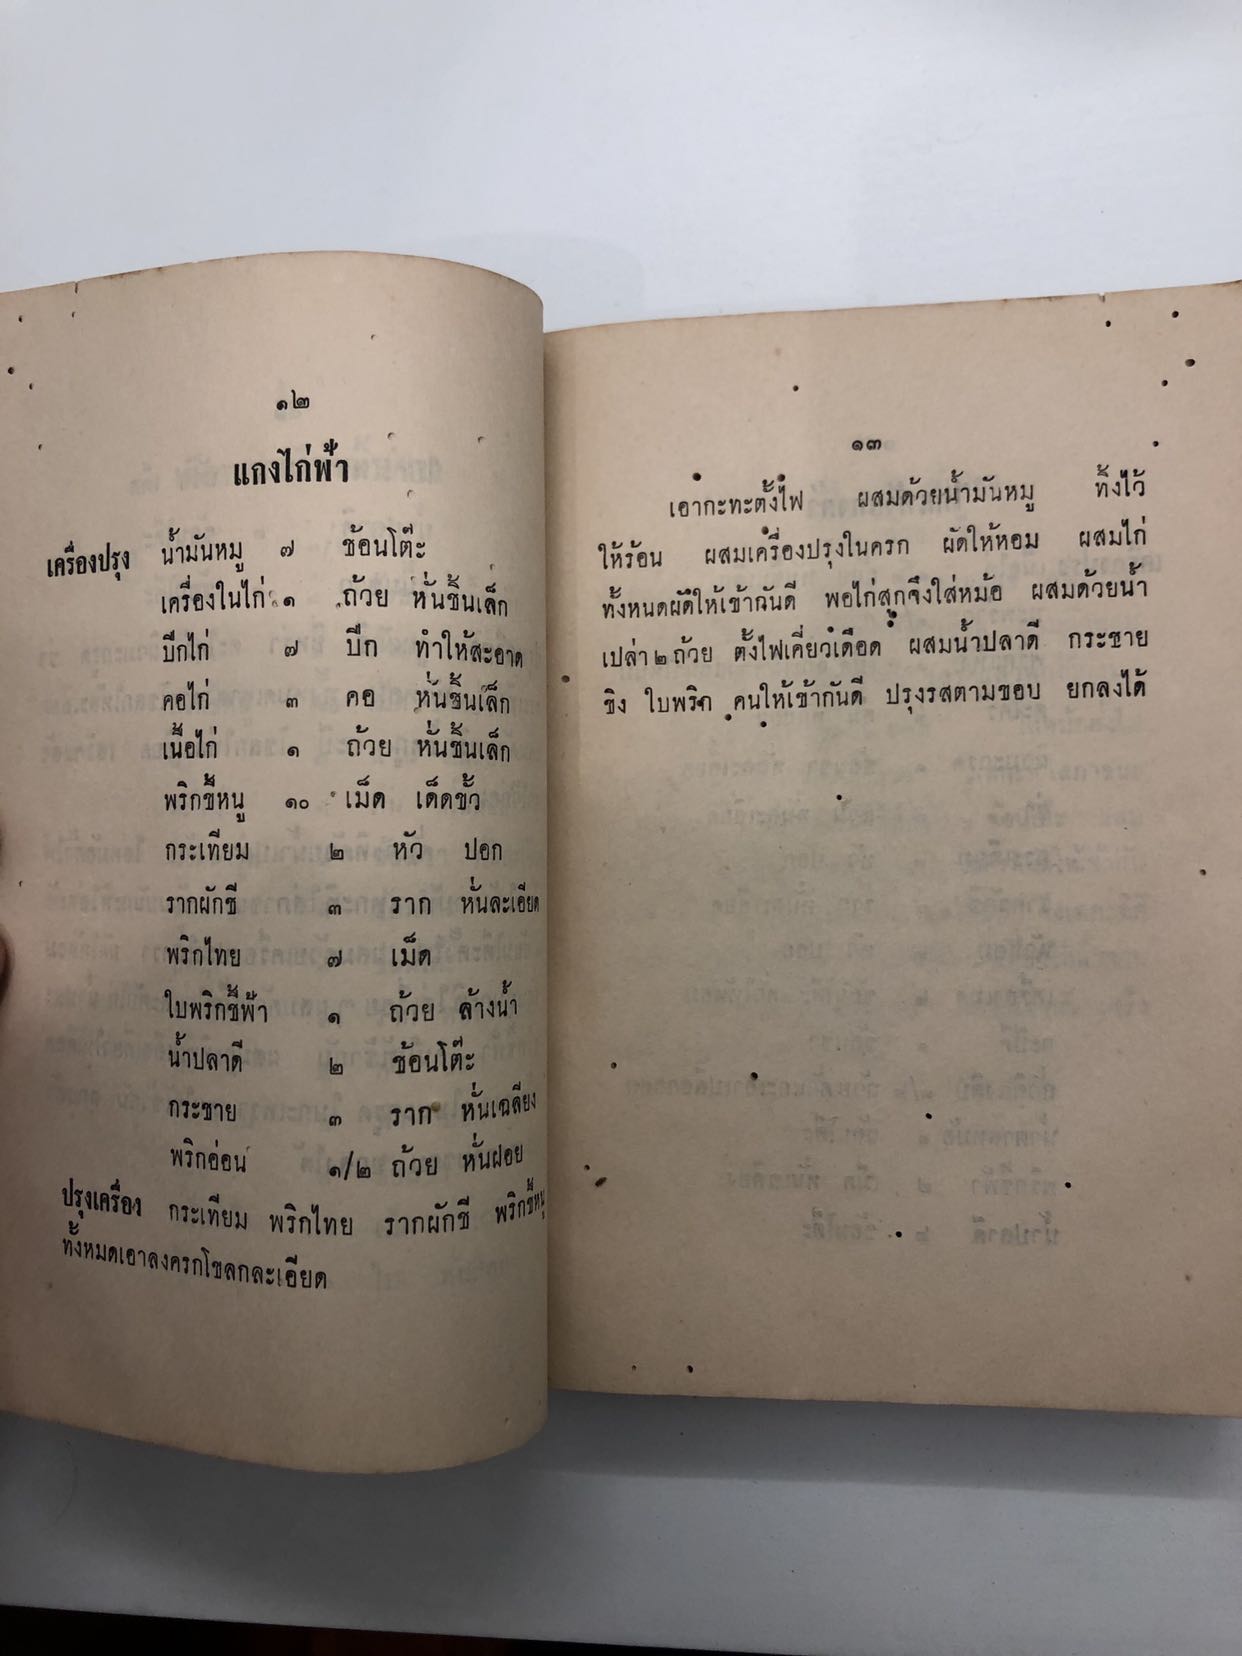 ๑๒
แกงไก่ฟ้า
เครื่องปรุง น้ำมันหมู ๗ ช้อนโต๊ะ
เครื่องในไก่ ๑ ถ้วย หั่นชิ้นเล็ก
ปีกไก่ ๗ ปีก ทำให้สะอาด
คอไก่ ๓ คอ หั่นชิ้นเล็ก
เนื้อไก่ ๑ ถ้วย หั่นชิ้นเล็ก
พริกขี้หนู ๑๐ เม็ด เด็ดขั้ว
กระเทียม ๒ หัว ปอก
รากผักชี ๓ ราก หั่นละเอียด
พริกไทย ๗ เม็ด
ใบพริกชี้ฟ้า ๑ ถ้วย ล้างน้ำ
น้ำปลาดี ๒ ช้อนโต๊ะ
กระชาย ๓ ราก หั่นเฉลียง
พริกอ่อน ๑/๒ ถ้วย หั่นฝอย
ปรุงเครื่อง กระเทียม พริกไทย รากผักชี พริกขี้หนู
ทั้งหมดเอาลงครกโขลกละเอียด
๑๓
เอากะทะตั้งไฟ ผสมด้วยน้ำมันหมู ทิ้งไว้
ให้ร้อน ผสมเครื่องปรุงในครก ผัดให้หอม ผสมไก่
ทั้งหมดผัดให้เข้ากันดี พอไก่สุกจึงใส่หม้อ ผสมด้วยน้ำ
เปล่า ๒ ถ้วย ตั้งไฟเคี่ยวเดือด ผสมน้ำปลาดี กระชาย
ขิง ใบพริก คนให้เข้ากันดี ปรุงรสตามชอบ ยกลงได้